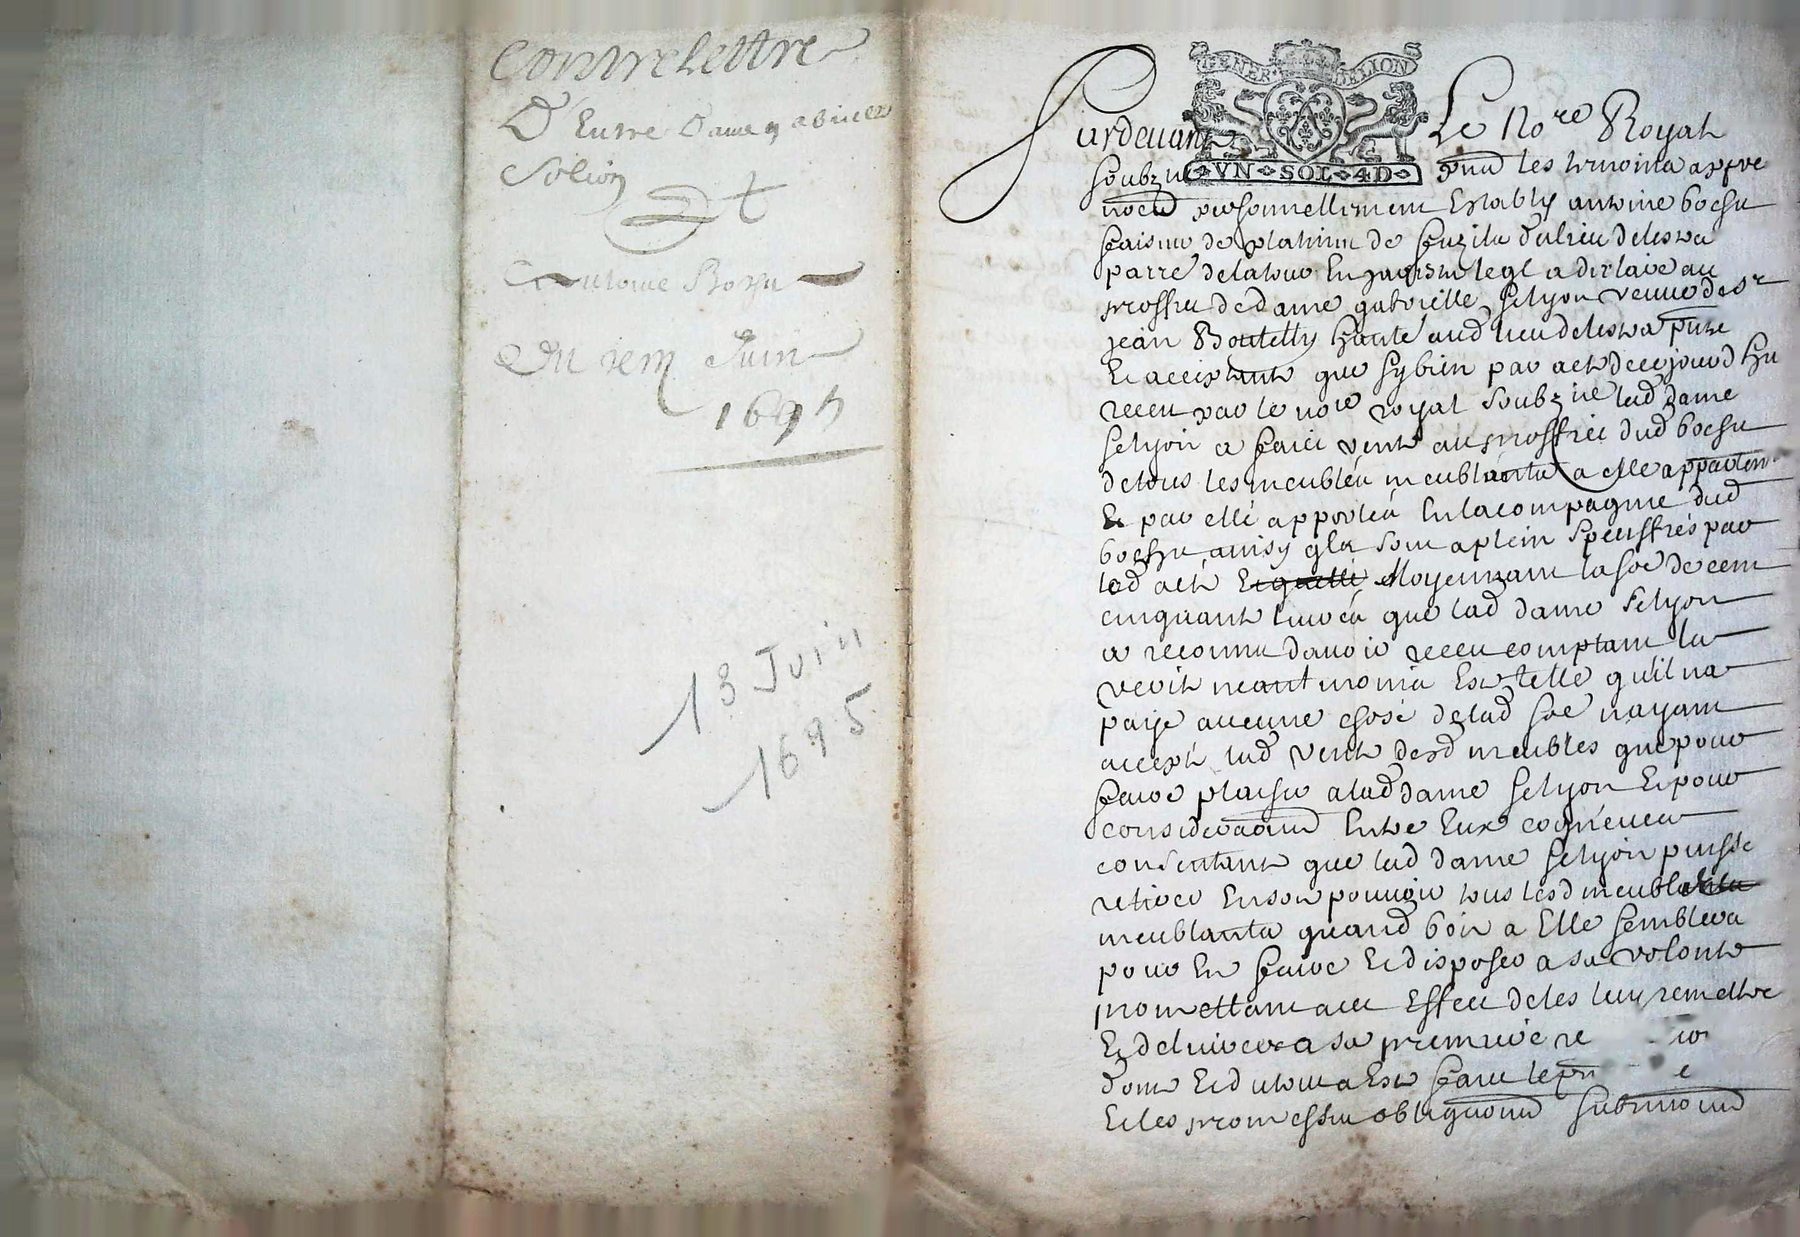 Contrelettre
D'Entre Dame gabriele
Solion
Et
Antoine Boyu
Du 13em Juin
1695
13 Juin
1695
GENER DE LION
VN SOL 4D
Pardevant Le Nore Royal
soubzne les temoins apres
nomes personnellement Estably antoine
de lieu de
parre lequel a declaré au
proffit de dame gabrielle Selyon veuve de sr
jean aud lieu
Et acceptante que sy bien par acte de ce jourd'huy
receu par le nore royal soubzne lad dame
Selyon a faict vente au proffict dud
de tous les meubles meublants a elle apparten
Et par elle apportés En la compagnie dud
ainsy qls sont a plein speciffiés par
led acte Moyennant la soe de cent
cinquante livres que lad dame Selyon
a reconnu d'avoir receu comptant la
verité neantmoins Est telle qu'il n'a
payé aucune chose de lad soe n'ayant
accepté lad vente desd meubles que pour
faire plaisir a lad dame Selyon Et pour
considerations Entre Eux cogneues
consentant que lad dame Selyon puisse
retirer En son pouvoir tous lesd
meublants quand bon a Elle semblera
pour En faire Et disposer a sa volonté
promettant a cet Effect de les luy remettre
Et delivrer a sa premiere re
dont Et du tout a Esté faict le
Et les promesses obligations submissions